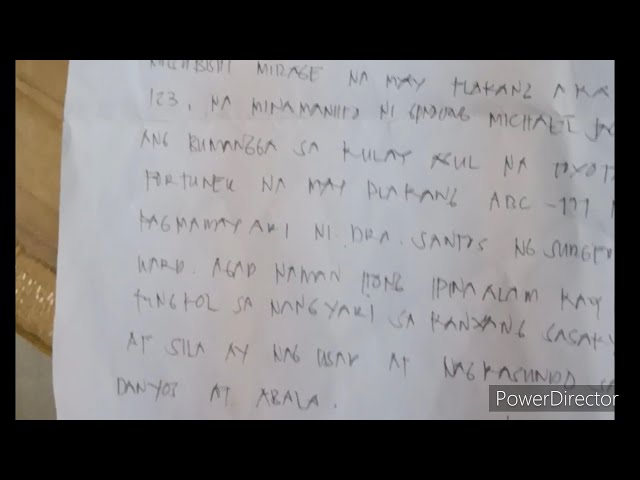 MIRAGE NA MAY PLAKANG AKA
123, NA MINAMANEHO NI GINOONG MICHAEL
ANG BUMANGGA SA KULAY ASUL NA TOYOT
FORTUNER NA MAY PLAKANG ABC -777
PAGMAMAY ARI NI DRA. SANTOS NG SURGE
WARD. AGAD NAMAN ITONG IPINAALAM KAY
TUNGKOL SA NANGYARI SA KANYANG SASAKY
AT SILA AY NAG USAP AT NAGKASUNDO SA
DANYOS AT ABALA.
PowerDirector